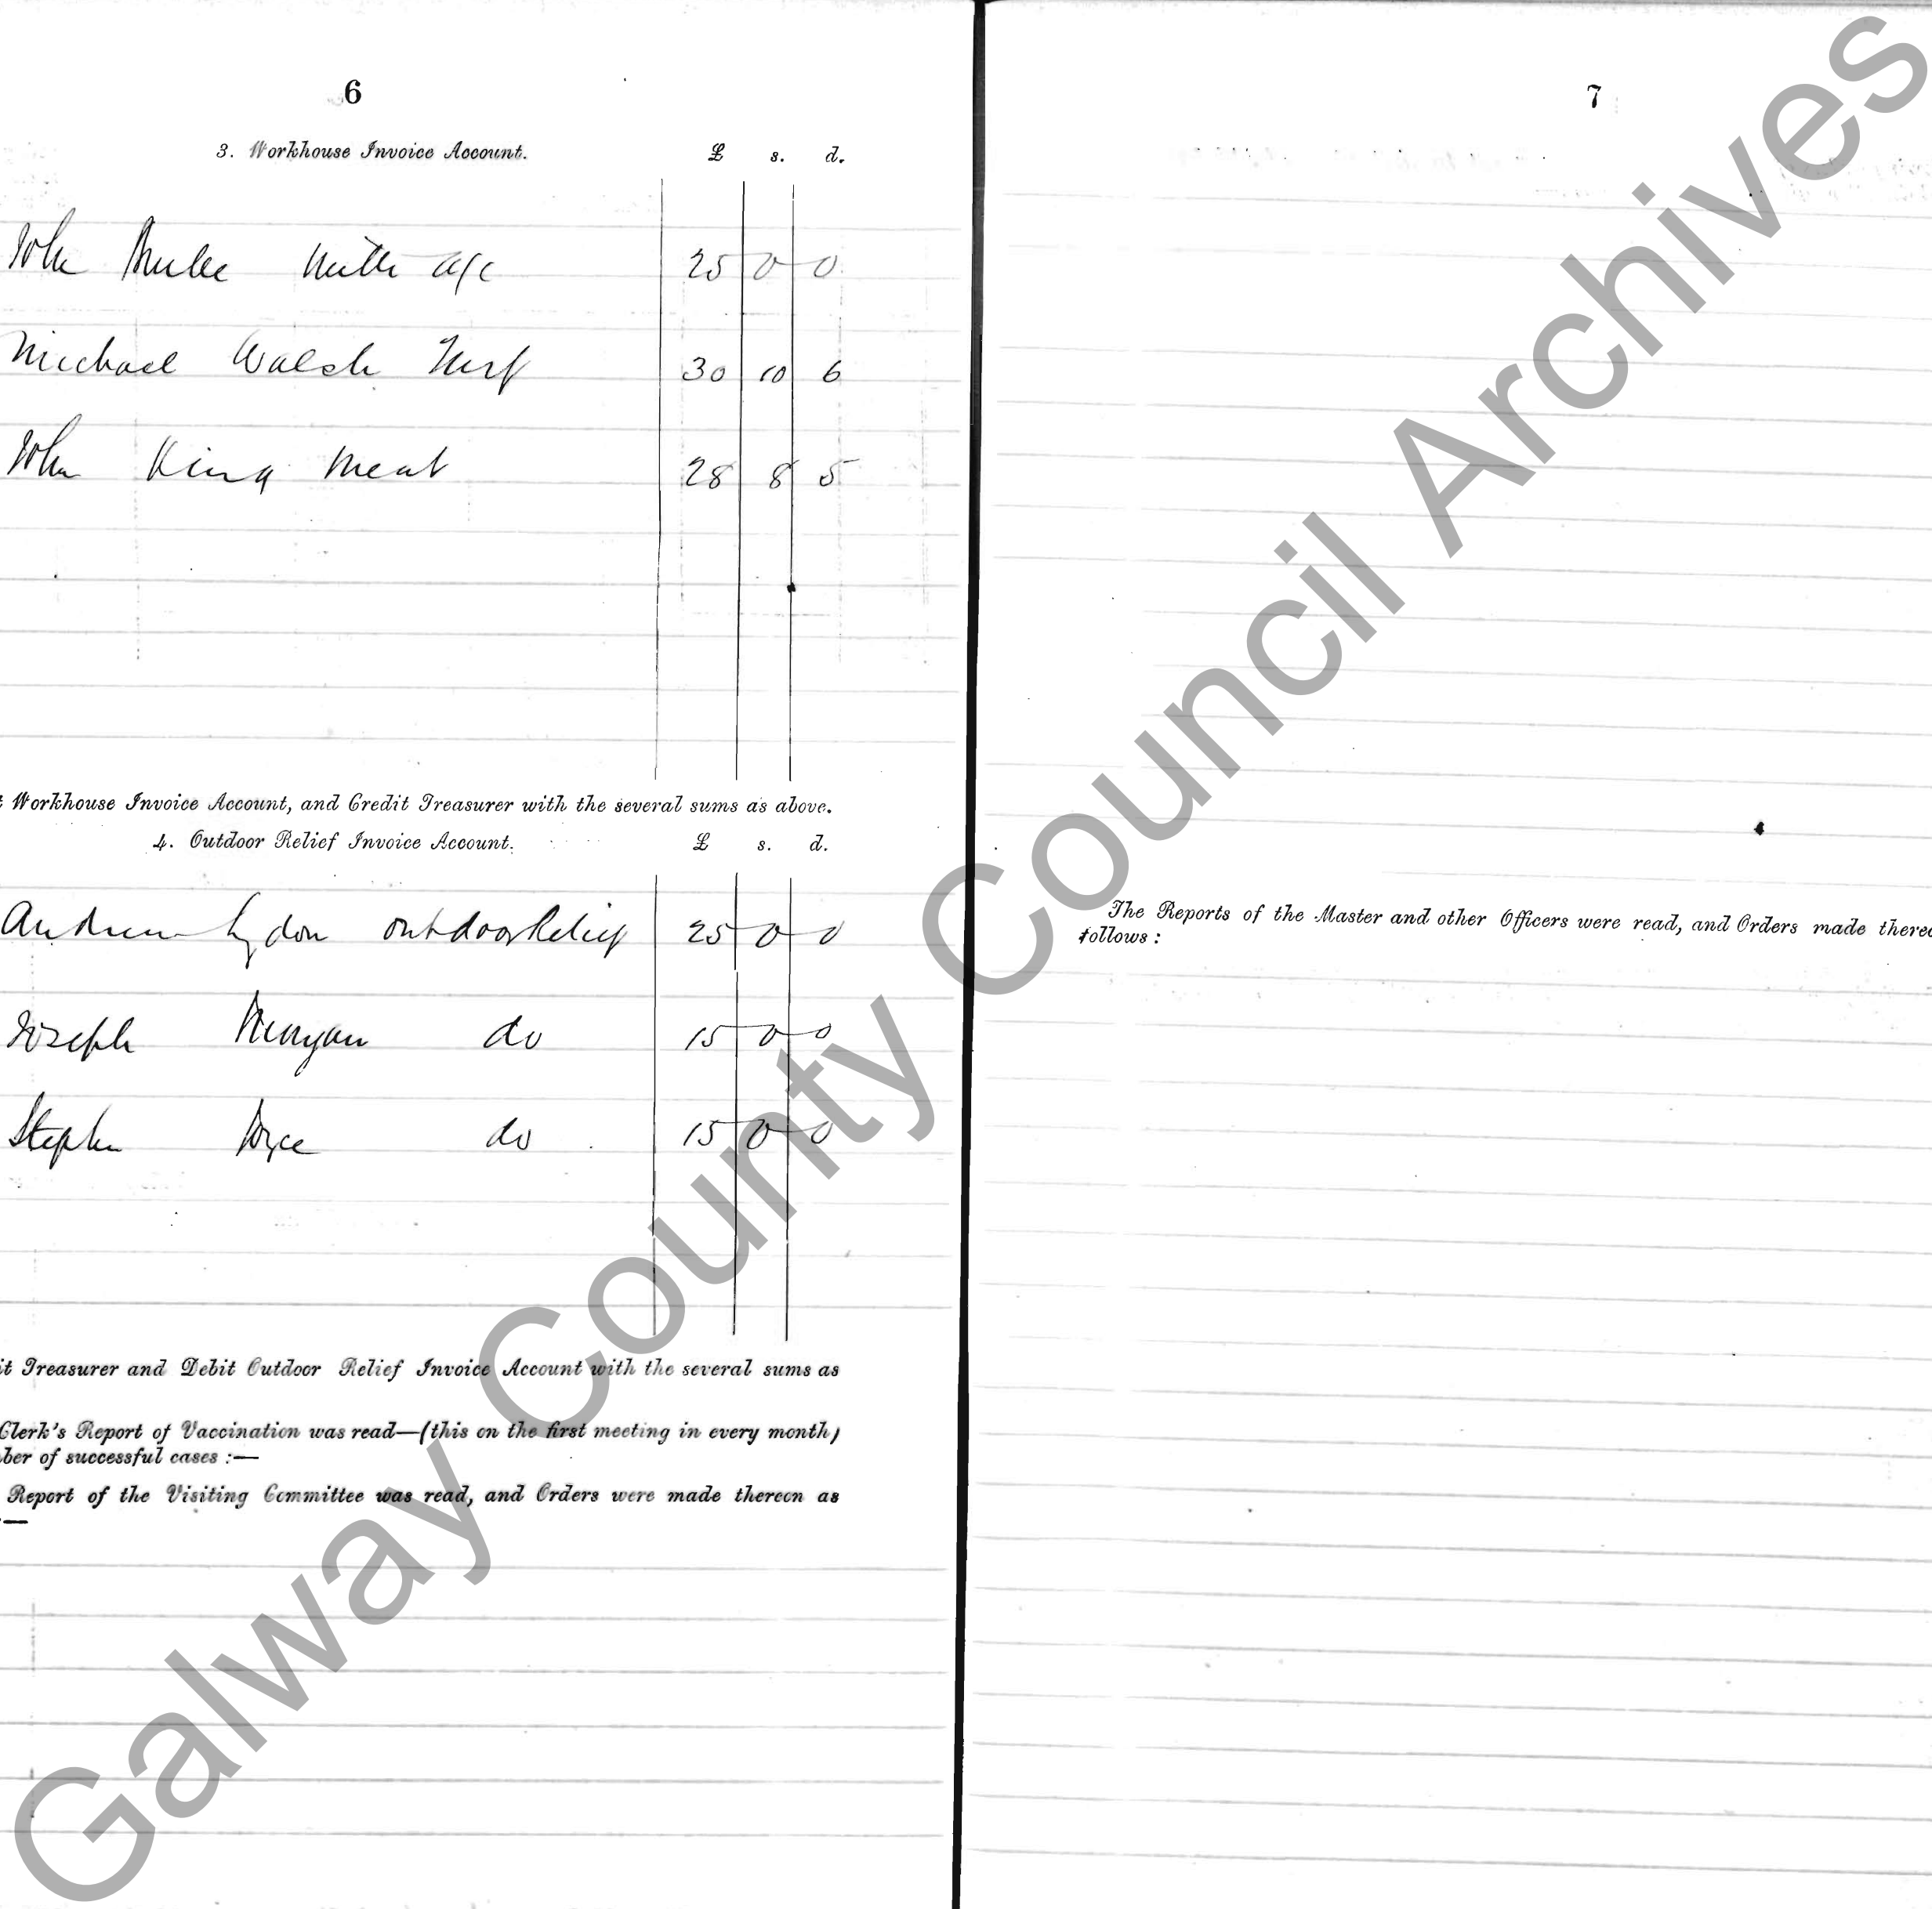 6
3. Workhouse Invoice Account. £ s. d.
John Milk a/c 25 0 0
Michael Walsh Turf 30 10 6
John King Meat 28 8 5
Workhouse Invoice Account, and Credit Treasurer with the several sums as above.
4. Outdoor Relief Invoice Account. £ s. d.
Andrew Lydon outdoor Relief 25 0 0
Joseph do 15 0 0
Stephen Joyce do 15 0 0
it Treasurer and Debit Outdoor Relief Invoice Account with the several sums as
Clerk's Report of Vaccination was read—(this on the first meeting in every month)
ber of successful cases :—
Report of the Visiting Committee was read, and Orders were made thereon as
:—
7
The Reports of the Master and other Officers were read, and Orders made thereo
follows :
Galway County Council Archives